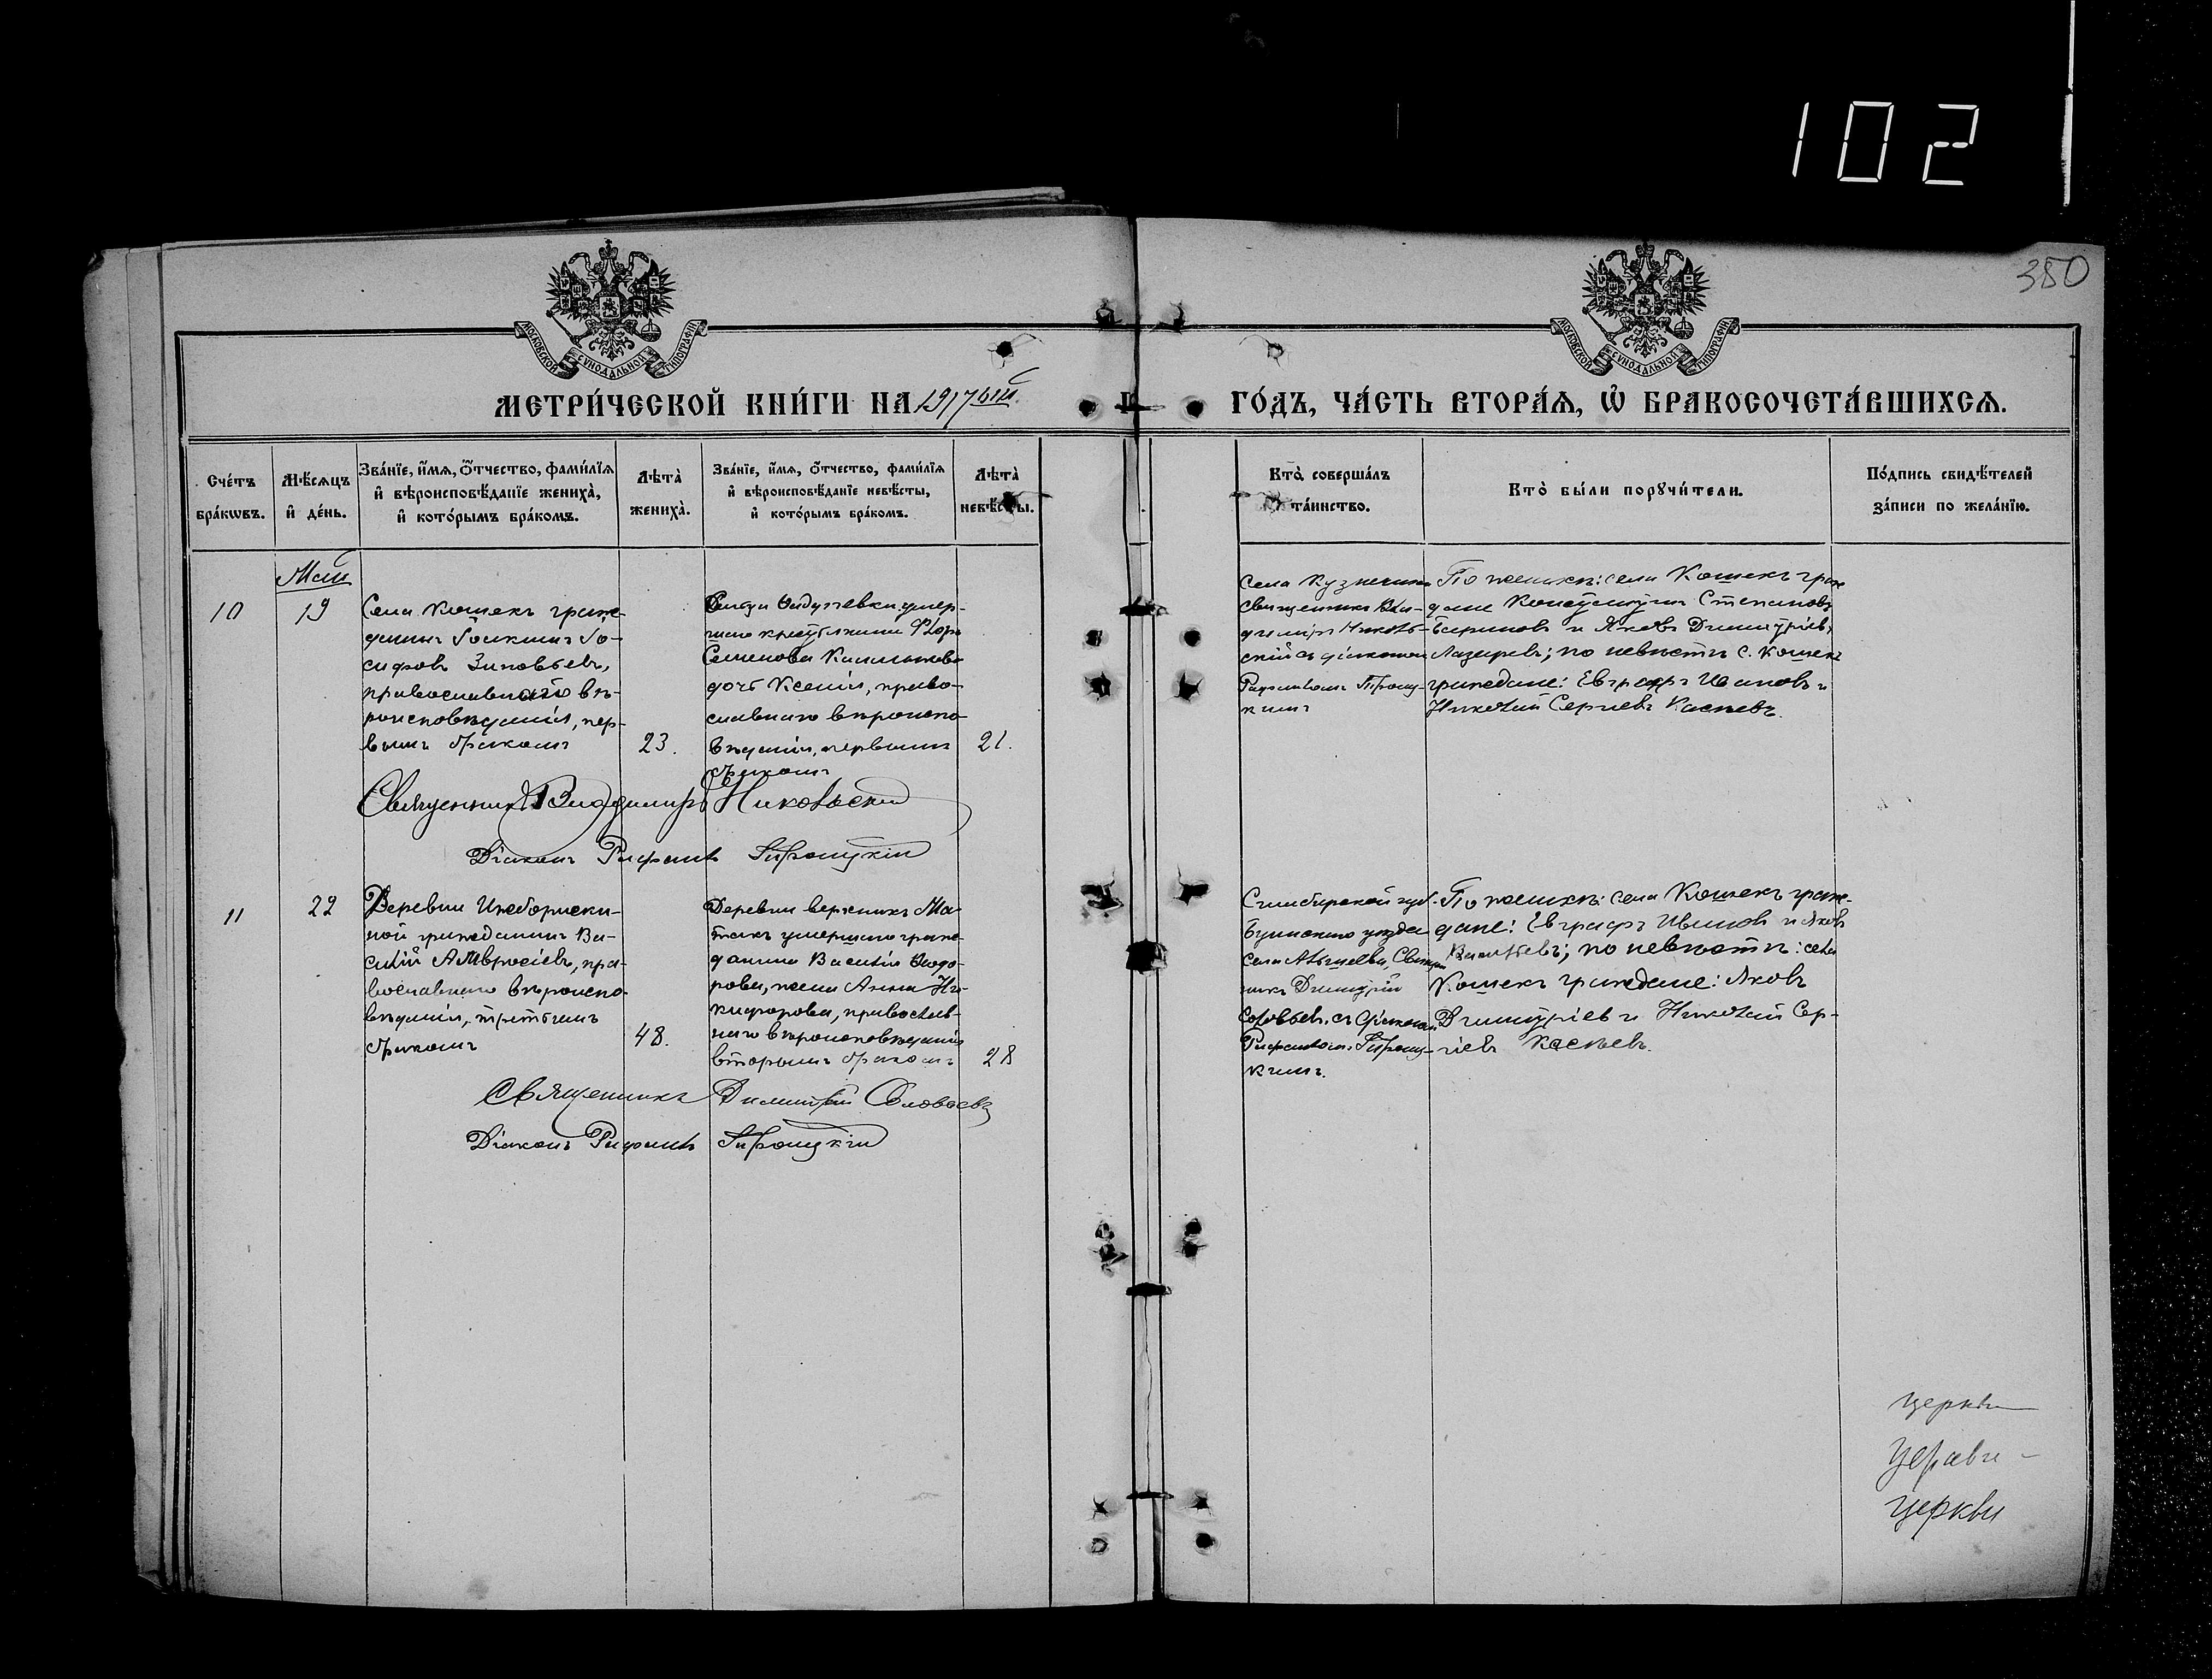 102
350
МОСКОВСКОЙ СѴНОДАЛЬНОЙ ТИПОГРАФІИ
МОСКОВСКОЙ СѴНОДАЛЬНОЙ ТИПОГРАФІИ
МЕТРИ́ЧЕСКОЙ КНИ́ГИ НА 1917ый
ГО́ДЪ, ЧА́СТЬ ВТОРА́Ѧ, Ѽ БРАКОСОЧЕТА́ВШИХСѦ.
Сче́тъ бра́кѡвъ.
Мѣ́сѧцъ и҆ де́нь.
Зва́нїе, и҆́мѧ, ѻ҆́тчество, фами́лїѧ
и҆ вѣроисповѣ́данїе жениха̀,
и҆ кото́рымъ бра́комъ.
Лѣта̀ жениха̀.
Зва́нїе, и҆́мѧ, ѻ҆́тчество, фами́лїѧ
и҆ вѣроисповѣ́данїе невѣ́сты,
и҆ кото́рымъ бра́комъ.
Лѣта̀ невѣ́сты.
Кто̀ соверша́лъ
та́инство.
Кто̀ бы́ли порꙋчи́тели.
По́дпись свидѣ́телей
за́писи по жела́нїю.
Май
10
19
Села Кошекъ граж-
данинъ Іоакимъ Іо-
сифовъ Зиновьевъ,
православнаго вѣ-
роисповѣданія, пер-
вымъ бракомъ
23.
умер-
шаго крестьянина
Семенова
дочь Ксенія, право-
славнаго вѣроиспо-
вѣданія, первымъ
бракомъ
21.
Села
священникъ Вла-
димиръ Николь-
скій съ діакономъ
кимъ
По женихѣ: села Кошекъ граж-
дане Константинъ Степановъ
и Яковъ Димитріевъ
Лазаревъ; по невѣстѣ с. Кошекъ
граждане: Евграфъ Ивановъ и
Николай Сергіевъ Касьевъ.
Священникъ Владимиръ Никольский
Діаконъ
11
22
Деревни
ной гражданинъ Ва-
силій Амвросіевъ, пра-
вославнаго вѣроиспо-
вѣданія, третьимъ
бракомъ
48.
Деревни верхнихъ Ма-
такъ умершаго граж-
данина Василія Ѳеодо-
рова, жена Анна Ни-
кифорова, православ-
наго вѣроисповѣданія
вторымъ бракомъ
28
Симбирской губ.
Буинскаго уѣзда
села Свящ
никъ Димитрій
Соловьевъ съ діакономъ
кимъ.
По женихѣ: села Кошекъ граж-
дане: Евграфъ Ивановъ и Яковъ
по невѣстѣ: села
Кошекъ граждане: Яковъ
Димитріевъ и Николай Сер-
гіевъ Касьевъ.
Священникъ Димитрій Соловьевъ
Діаконъ
церкви
церкви